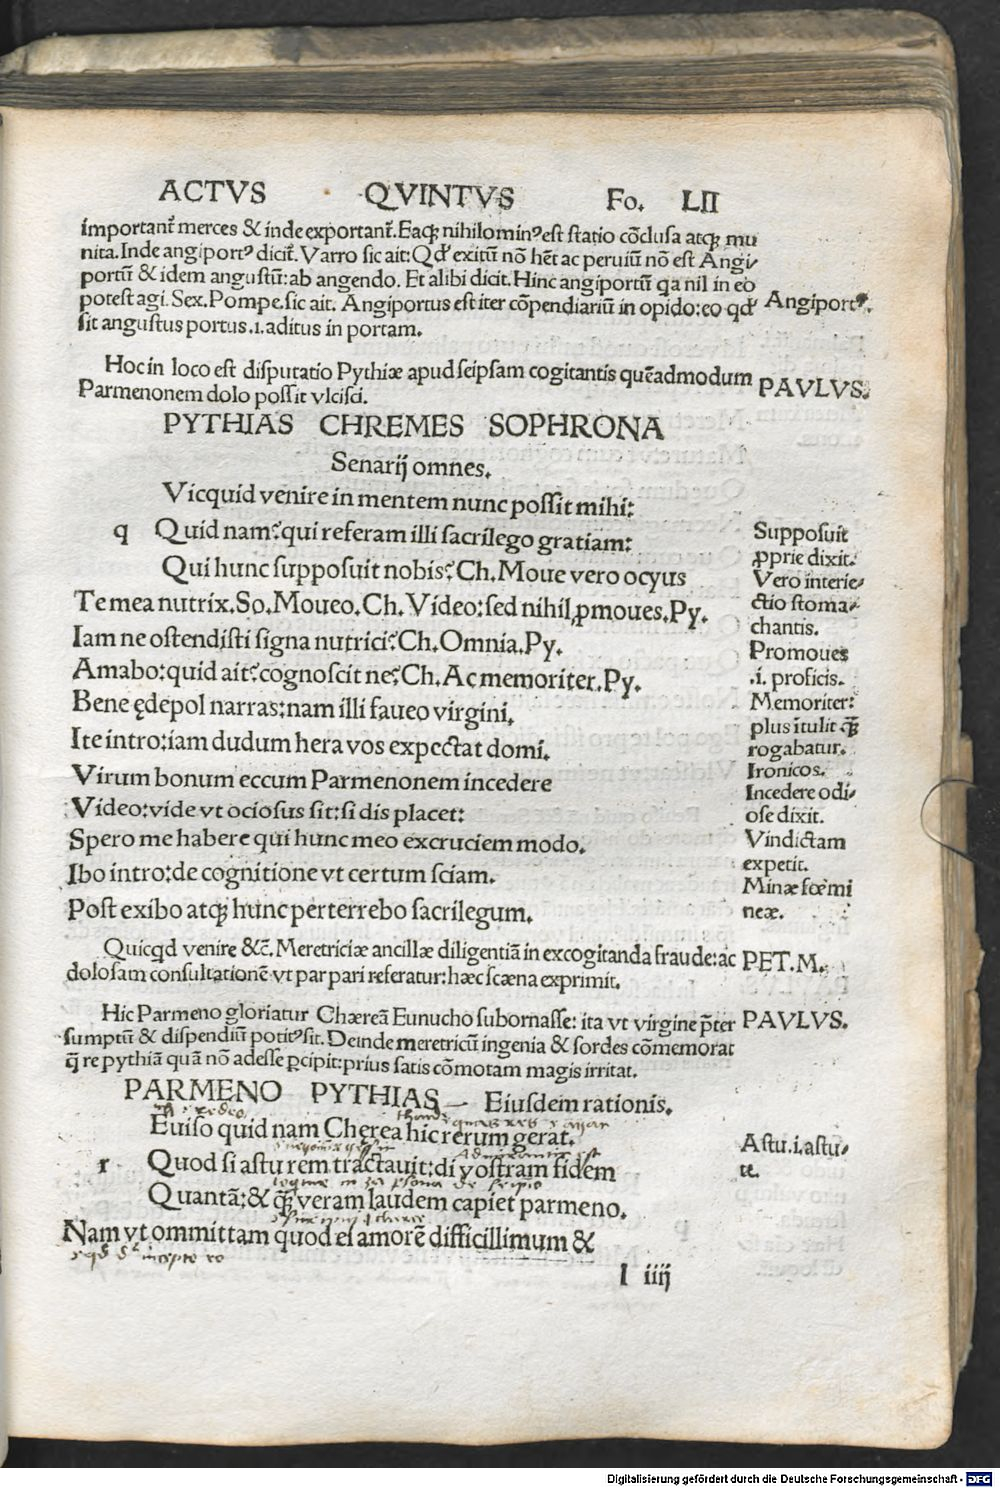 ACTVS QVINTVS Fo. LII
importanť merces & inde exportanť. Eaqꝫ nihilominꝰ est statio cōclusa atqꝫ mu
nita. Inde angiportꝰ diciť. Varro sic ait: Qđ exitū nō hēt ac peruiū nō est Angi-
portū & idem angustū: ab angendo. Et alibi dicit. Hinc angiportū qa nil in eo
potest agi. Sex. Pompe. sic ait. Angiportus est iter cōpendiariū in opido: eo qđ
sit angustus portus .i. aditus in portam.
Angiportꝰ.
Hoc in loco est disputatio Pythiæ apud seipsam cogitantis quēadmodum
Parmenonem dolo possit vlcisci.
PAVLVS.
PYTHIAS CHREMES SOPHRONA
Senarij omnes.
Vicquid venire in mentem nunc possit mihi:
q Quid nam? qui referam illi sacrilego gratiam:
Qui hunc supposuit nobis? Ch. Moue vero ocyus
Te mea nutrix. So. Moueo. Ch. Video: sed nihil ꝓmoues. Py.
Iam ne ostendisti signa nutrici? Ch. Omnia. Py.
Amabo: quid ait? cognoscit ne? Ch. Ac memoriter. Py.
Bene ędepol narras: nam illi faueo virgini.
Ite intro: iam dudum hera vos expectat domi.
Virum bonum eccum Parmenonem incedere
Video: vide vt ociosus sit: si dis placet:
Spero me habere qui hunc meo excruciem modo.
Ibo intro: de cognitione vt certum sciam.
Post exibo atqꝫ hunc perterrebo sacrilegum.
Supposuit
ꝓprie dixit.
Vero interie-
ctio stoma-
chantis.
Promoues
.i. proficis.
Memoriter:
plus ītulit q̄ꝫ
rogabatur.
Ironicos.
Incedere odi-
ose dixit.
Vindictam
expetit.
Minæ fœmi
neæ.
Quicqd venire &c̄. Meretriciæ ancillæ diligentiā in excogitanda fraude: ac
dolosam consultationē vt par pari referatur: hæc scæna exprimit.
PET. M.
Hic Parmeno gloriatur Chæreā Eunucho subornasse: ita vt virgine p̄ter
sumptū & dispendiū potitꝰ sit. Deinde meretricū ingenia & sordes cōmemorat
q̄ re pythiā quā nō adesse ꝑcipit: prius satis cōmotam magis irritat.
PAVLVS.
PARMENO PYTHIAS Eiusdem rationis.
Euiso quid nam Cherea hic rerum gerat.
r Quod si astu rem tractauit: di vostram fidem
Quantā: & q̄ꝫ veram laudem capiet parmeno.
Nam vt ommittam quod ei amorē difficillimum &
Astu .i. astu-
te.
I iiij
Digitalisierung gefördert durch die Deutsche Forschungsgemeinschaft - DFG